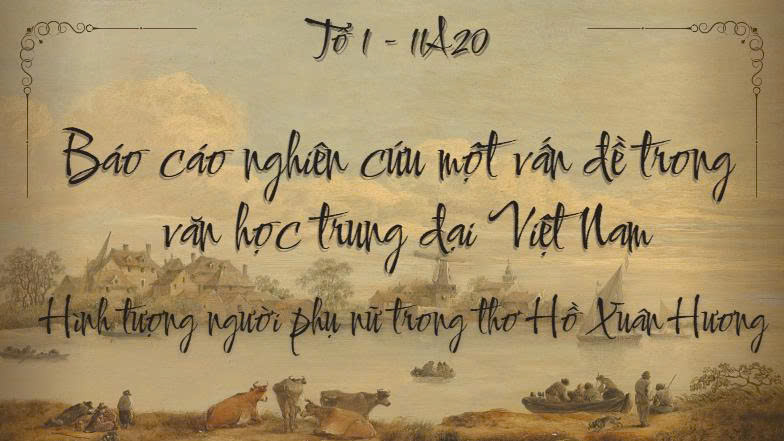 Tổ 1 - 11A20
Báo cáo nghiên cứu một vấn đề trong
văn học trung đại Việt Nam
Hình tượng người phụ nữ trong thơ Hồ Xuân Hương